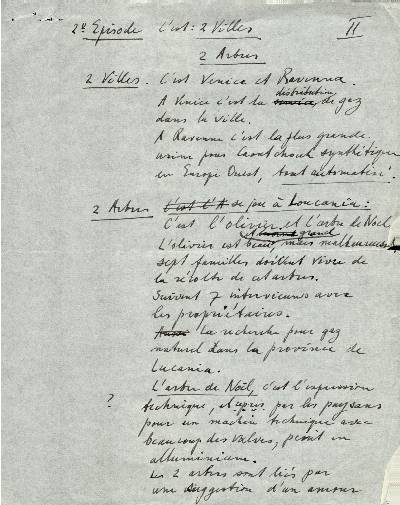 2e Episode C'est: 2 Villes II
2 Arbres
2 Villes. C'est Venice et Ravenna.
A Venice c'est la distribution de gaz
dans la ville.
A Ravenne c'est la plus grande
usine pour Caoutchouk synthétique
en Europe Ouest, tout automatisé.
2 Arbres C'est l'A se joue à Loucania:
C'est l'olivier et l'arbre de Noël
L'olivier est grand, mais malheureusement
sept familles doillent vivre de
la récolte de cet arbre.
Suivent 7 interviews avec
les propriétaires.
la recherche pour gaz
naturel dans la province de
Lucania.
L'arbre de Noël, c'est l'expression
? technique, et par les paysans
pour un machin technique avec
beaucoup des valves, peint en
alluminium.
Les 2 arbres sont liés par
une suggestion d'un amour